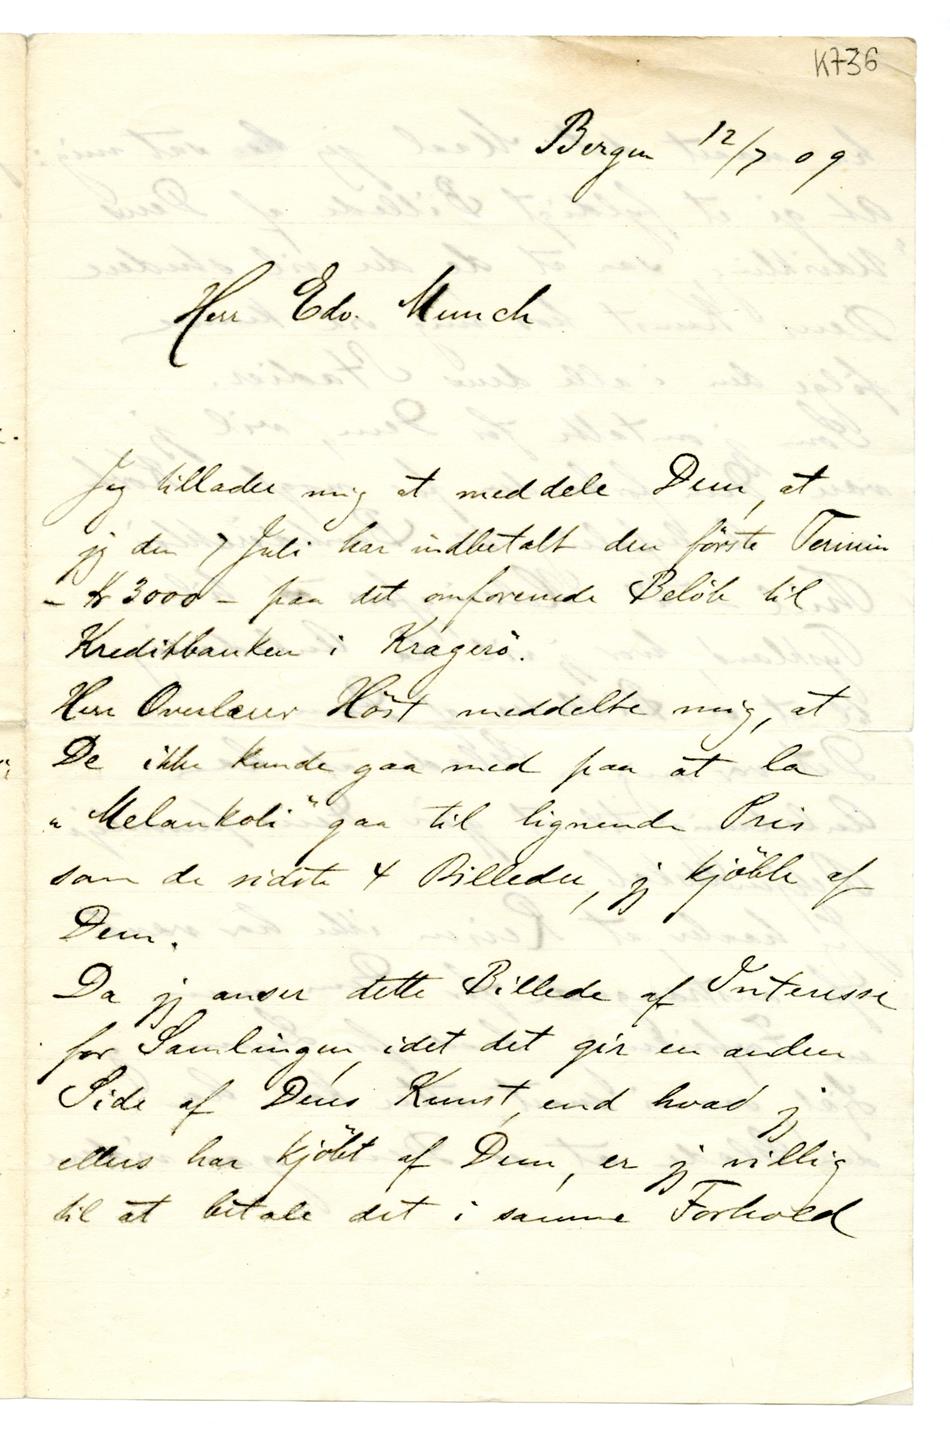 K736
Bergen 12/7 09
Herr Edv. Munch
Jeg tillader mig at meddele Dem, at
jeg den 7 Juli har indbetalt den første Termin
– Kr 3000 – paa det omforenede Beløb til
Kreditbanken i Kragerö.
Herr Overlærer Höst meddelte mig, at
De ikke kunde gaa med paa at la
"Melankoli" gaa til lignende Pris
som de sidste 4 Billeder, jeg kjöbte af
Dem.
Da jeg anser dette Billede af Interesse
for Samlingen, idet det gir en anden
Side af Deres Kunst, end hvad jeg
ellers har kjöbt af Dem, er jeg villig
til at betale det i samme Forhold